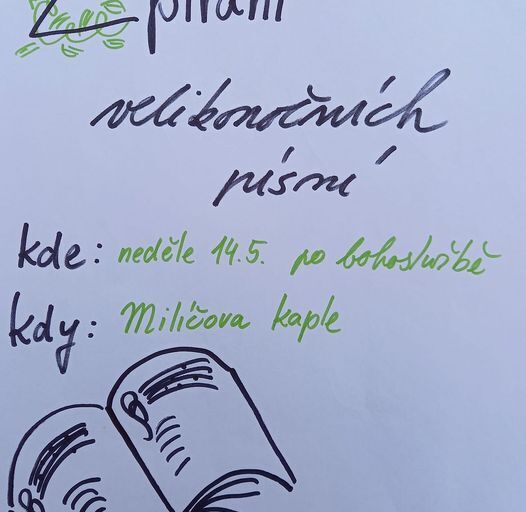 Zpívání
velikonočních
písní
kde: neděle 14.5. po bohoslužbě
kdy: Milíčova kaple